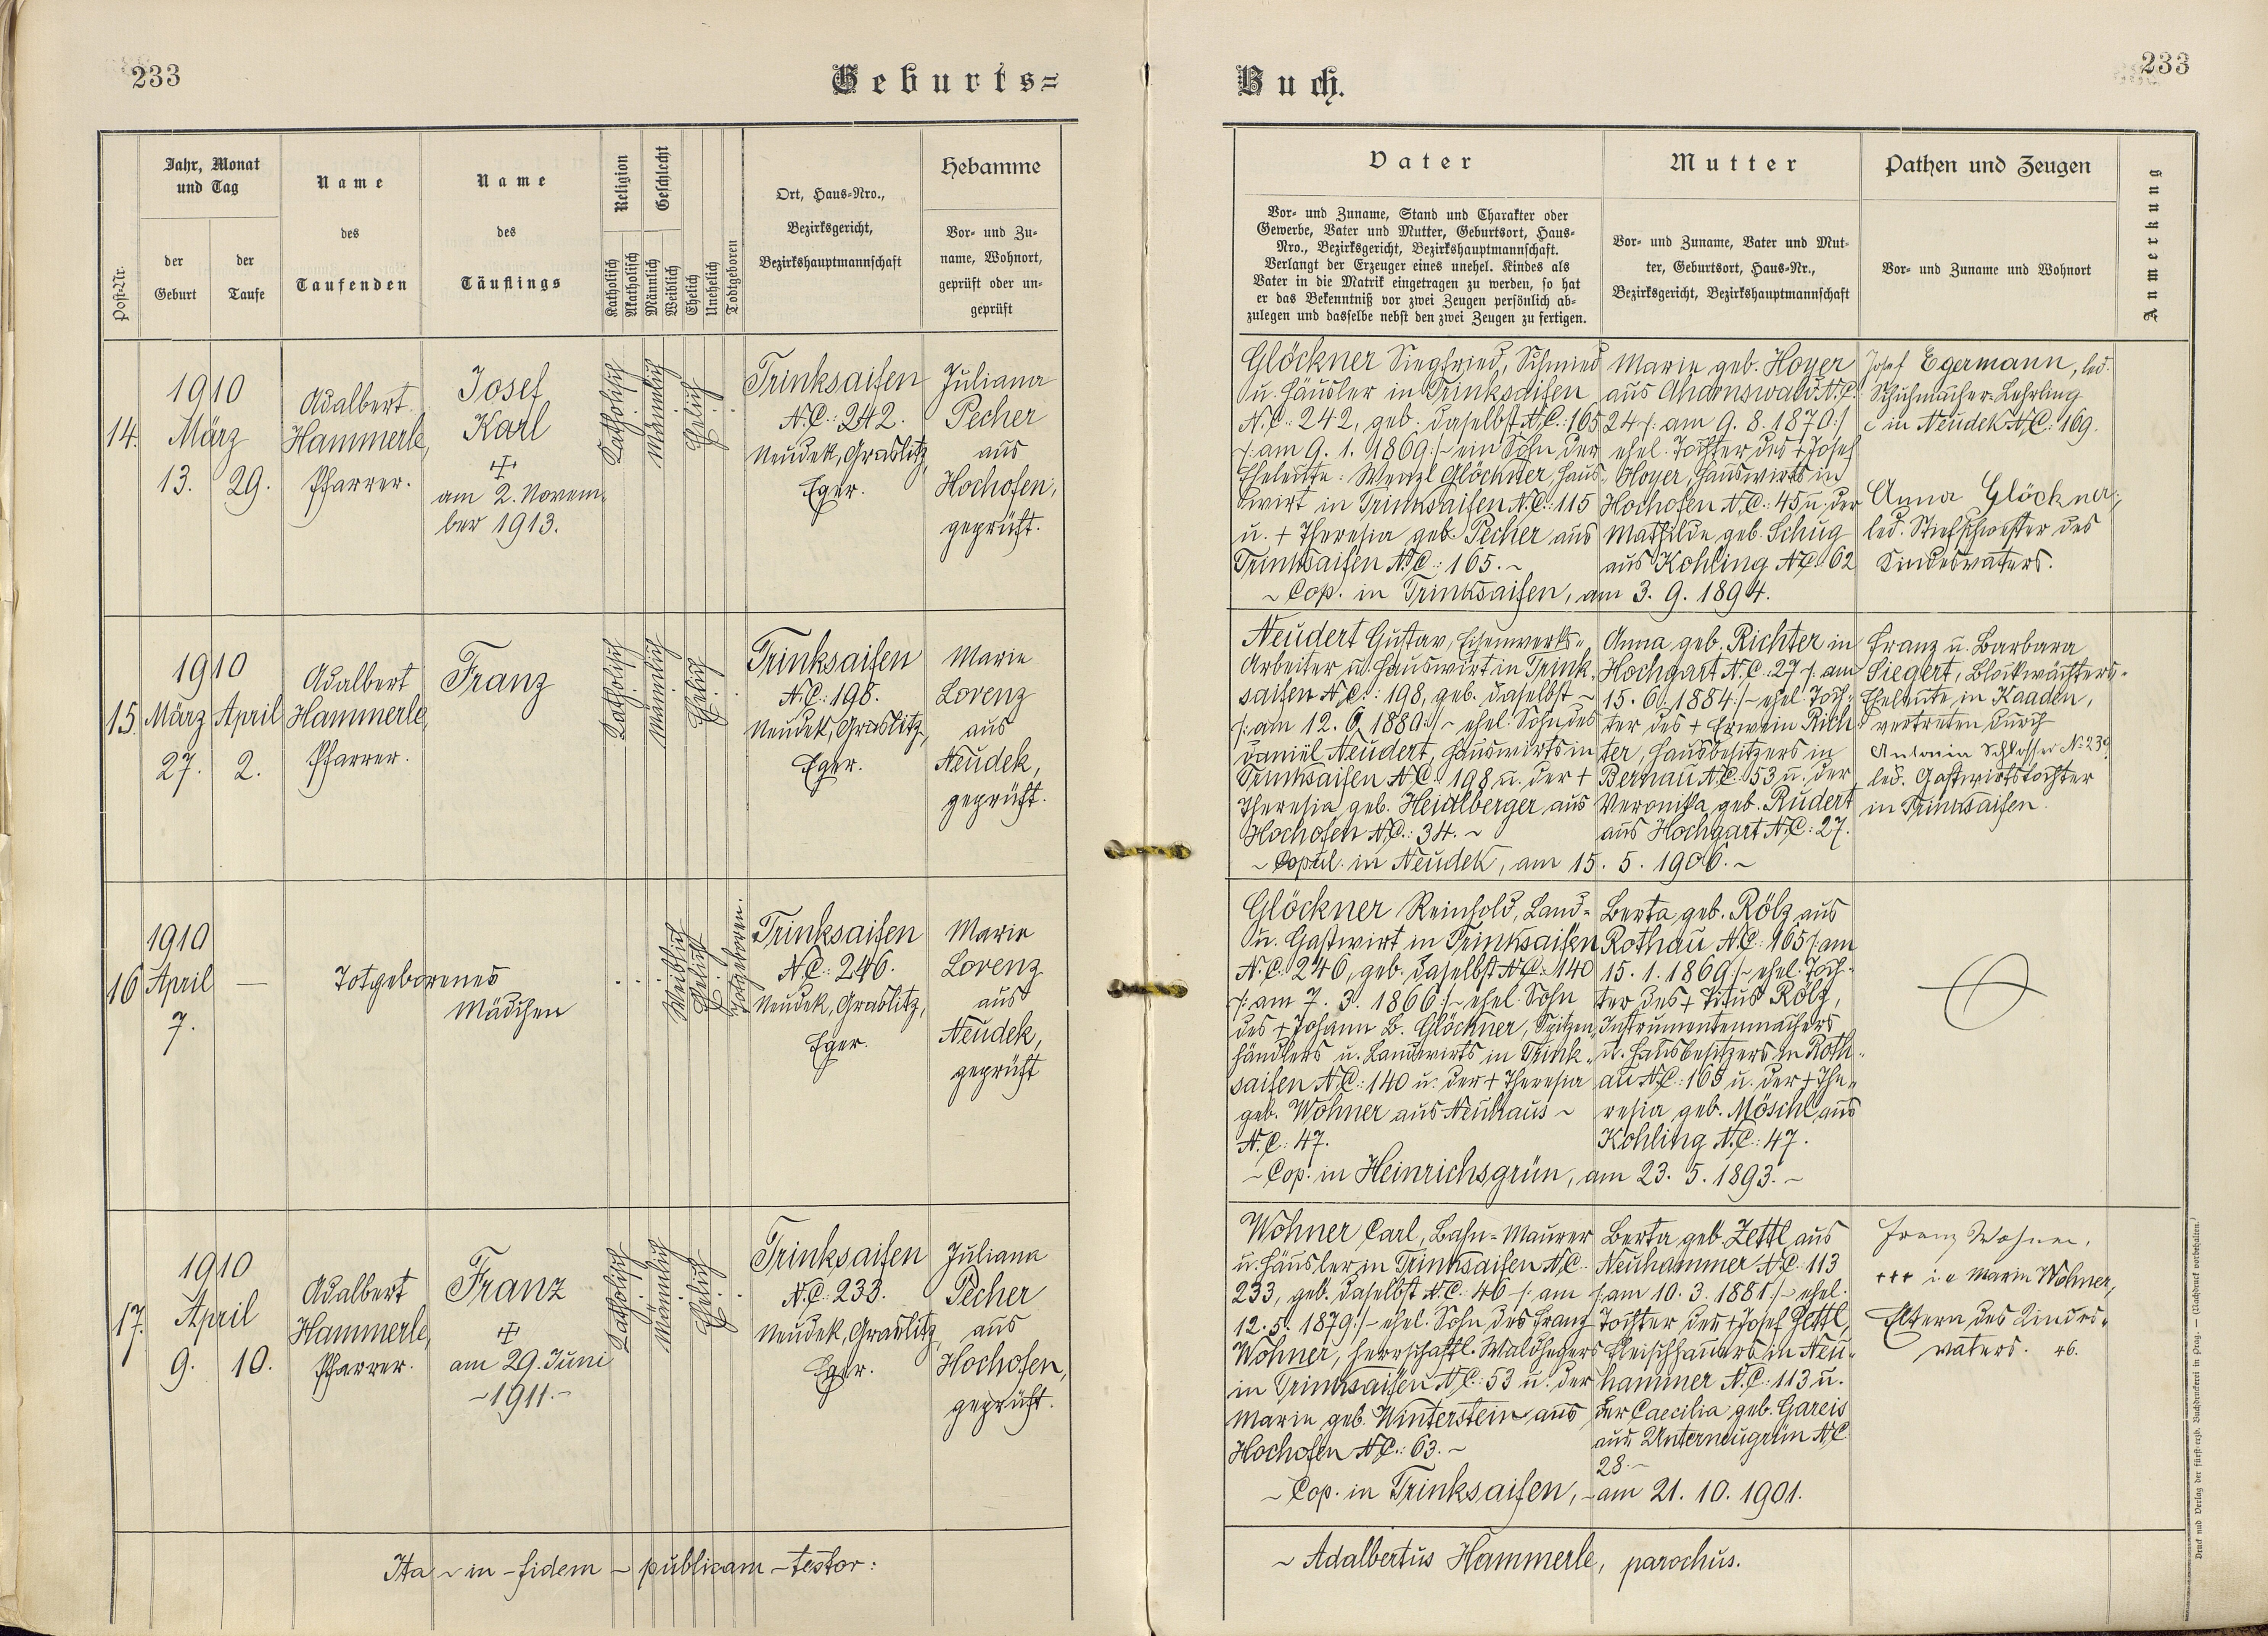 233
Geburts=
Post-Nr.
Jahr, Monat
und Tag
der
Geburt
der
Taufe
Name
des
Taufenden
Name
des
Täuflings
Religion
Katholisch
Akatholisch
Geschlecht
Männlich
Weiblich
Ehelich
Unehelich
Todtgeboren
Ort, Haus-Nro.,
Bezirksgericht,
Bezirkshauptmannschaft
Hebamme
Vor- und Zu-
name, Wohnort,
geprüft oder un-
geprüft
14.
1910
März
13. 29.
Adalbert
Hammerle,
Pfarrer.
Josef
Karl
am 2. Novem-
ber 1913.
Katholisch
Männlich
Ehelich
Trinksaifen
N.C.: 242.
Neudek, Graslitz,
Eger.
Juliana
Pecher
aus
Hochofen,
geprüft.
15.
1910
März April
27. 2.
Adalbert
Hammerle,
Pfarrer.
Franz
Katholisch
Männlich
Ehelich
Trinksaifen
N.C.: 198.
Neudek, Graslitz,
Eger.
Marie
Lorenz
aus
Neudek,
geprüft.
16
1910
April —
7.
Totgeborenes
Mädchen
Weiblich
Ehelich
Totgeboren.
Trinksaifen
N.C.: 246.
Neudek, Graslitz,
Eger.
Marie
Lorenz
aus
Neudek,
geprüft
17.
1910
April
9. 10.
Adalbert
Hammerle,
Pfarrer.
Franz
am 29. Juni
~ 1911. ~
Katholisch
Männlich
Ehelich
Trinksaifen
N.C.: 233.
Neudek, Graslitz,
Eger.
Juliana
Pecher
aus
Hochofen,
geprüft.
Ita ~ in – fidem – publicam – testor:
Buch.
233
Vater
Vor- und Zuname, Stand und Charakter oder
Gewerbe, Vater und Mutter, Geburtsort, Haus-
Nro., Bezirksgericht, Bezirkshauptmannschaft.
Verlangt der Erzeuger eines unehel. Kindes als
Vater in die Matrik eingetragen zu werden, so hat
er das Bekenntniß vor zwei Zeugen persönlich ab-
zulegen und dasselbe nebst den zwei Zeugen zu fertigen.
Mutter
Vor- und Zuname, Vater und Mut-
ter, Geburtsort, Haus-Nr.,
Bezirksgericht, Bezirkshauptmannschaft
Pathen und Zeugen
Vor- und Zuname und Wohnort
Anmerkung
Glöckner Siegfried, Schmied
u. Häusler in Trinksaifen
N.C.: 242, geb. daselbst N.C.: 165
/: am 9. 1. 1869 :/ ~ ein Sohn der
Eheleute: Wenzl Glöckner, Haus-
wirt in Trinksaifen N.C.: 115
u. + Theresia geb. Pecher aus
Trinksaifen N.C.: 165. ~
Marie geb. Hoyer
aus N.C.
24 /: am 9. 8. 1870 :/
ehel. Tochter des + Josef
Hoyer, Hauswirts in
Hochofen N.C.: 45 u. der
Mathilde geb. Schug
aus Kohling N.C. 62
~ Cop. in Trinksaifen, am 3. 9. 1894.
Josef Egermann, led.
Schuhmacher-Lehrling
in Neudek N.C.: 169.
Anna Glöckner,
led. Stiefschwester des
Kindesvaters.
Neudert Gustav, Eisenwerks-
Arbeiter u. Hauswirt in Trink-
saifen N.C.: 198, geb. daselbst ~
/: am 12. 6. 1880 :/ ~ ehel. Sohn des
Daniel Neudert, Hauswirts in
Trinksaifen N.C. 198 u. der +
Theresia geb. Heidlberger aus
Hochofen N.C.: 34. ~
Anna geb. Richter in
Hochgart N.C.: 27 /: am
15. 6. 1884 :/ ~ ehel. Toch-
ter des + Erwein Rich-
ter, Hausbesitzers in
Bernau N.C. 53 u. der
Veronika geb. Rudert
aus Hochgart N.C.: 27.
~ Copul. in Neudek, am 15. 5. 1906. ~
Franz u. Barbara
Siegert, Blockwächters-
Eheleute in Kaaden,
vertreten durch
Antonia Schlosser No 239
led. Gastwirtstochter
in Trinksaifen.
Glöckner Reinhold, Land-
u. Gastwirt in Trinksaifen
N.C. 246, geb. daselbst N.C. 140
/: am 7. 3. 1866 :/ ~ ehel. Sohn
des + Johann B. Glöckner, Spitzen-
händlers u. Landwirts in Trink-
saifen N.C.: 140 u. der + Theresia
geb. Wöhner aus Neuhaus ~
N.C.: 47.
Berta geb. Rölz aus
Rothau N.C.: 165 /: am
15. 1. 1869 :/ ~ ehel. Toch-
ter des + Titus Rölz,
Instrumentenmachers
u. Hausbesitzers in Roth-
au N.C.: 165 u. der + The-
resia geb. Möschl aus
Kohling N.C.: 47.
~ Cop. in Heinrichsgrün, am 23. 5. 1893. ~
Wöhner Carl, Bahn-Maurer
u. Häusler in Trinksaifen N.C.
233, geb. daselbst N.C.: 46 /: am
12. 5. 1879 :/ ~ ehel. Sohn des Franz
Wöhner, herrschaftl. Waldhegers
in Trinksaifen N.C.: 53 u. der
Marie geb. Winterstein aus
Hochofen N.C.: 63. ~
Berta geb. Zettl aus
Neuhammer N.C. 113
/: am 10. 3. 1881 :/ ~ ehel.
Tochter des + Josef Zettl,
Fleischhauers in Neu-
hammer N.C.: 113 u.
der Caecilia geb. Gareis
aus Unterneugrün N.C.
28. ~
~ Cop. in Trinksaifen, ~ am 21. 10. 1901.
Franz Wohner,
+++ i.e. Marie Wöhner,
Eltern des Kindes-
vaters. 46.
~ Adalbertus Hammerle, parochus.
Druck und Verlag der fürst-erzb. Buchdruckerei in Prag. — (Nachdruck vorbehalten.)